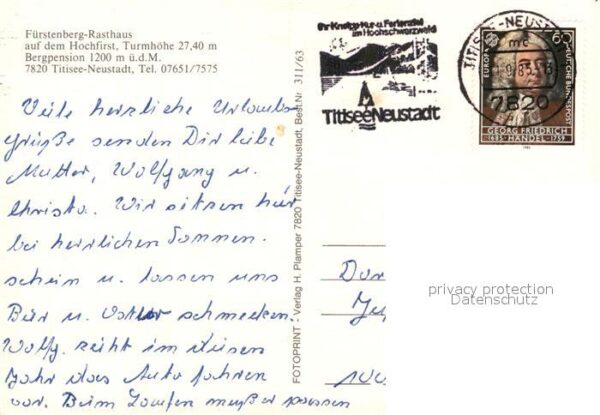 Fürstenberg-Rasthaus
auf dem Hochfirst, Turmhöhe 27,40 m
Bergpension 1200 m ü.d.M.
7820 Titisee-Neustadt, Tel. 07651/7575
Viele herzliche Urlaubs
grüße senden Dir liebe
Mutter, Wolfgang u.
Christa. Wir sitzen hier
bei herrlichen Sonnen.
schein u. lassen uns
Bier u. schmecken.
Wolfg. zieht im diesen
Jahr das Auto fahren
vor. Beim Laufen
FOTOPRINT - Verlag H. Plamper 7820 Titisee-Neustadt, Best.Nr. 311/63
Ihr Kneipp-Kur-u. Ferienziel
im Hochschwarzwald
Titisee Neustadt
TITISEE-NEUSTADT
mc
7820
EUROPA
60
DEUTSCHE BUNDESPOST
GEORG FRIEDRICH
1685 HÄNDEL 1759
1985
privacy protection
Datenschutz